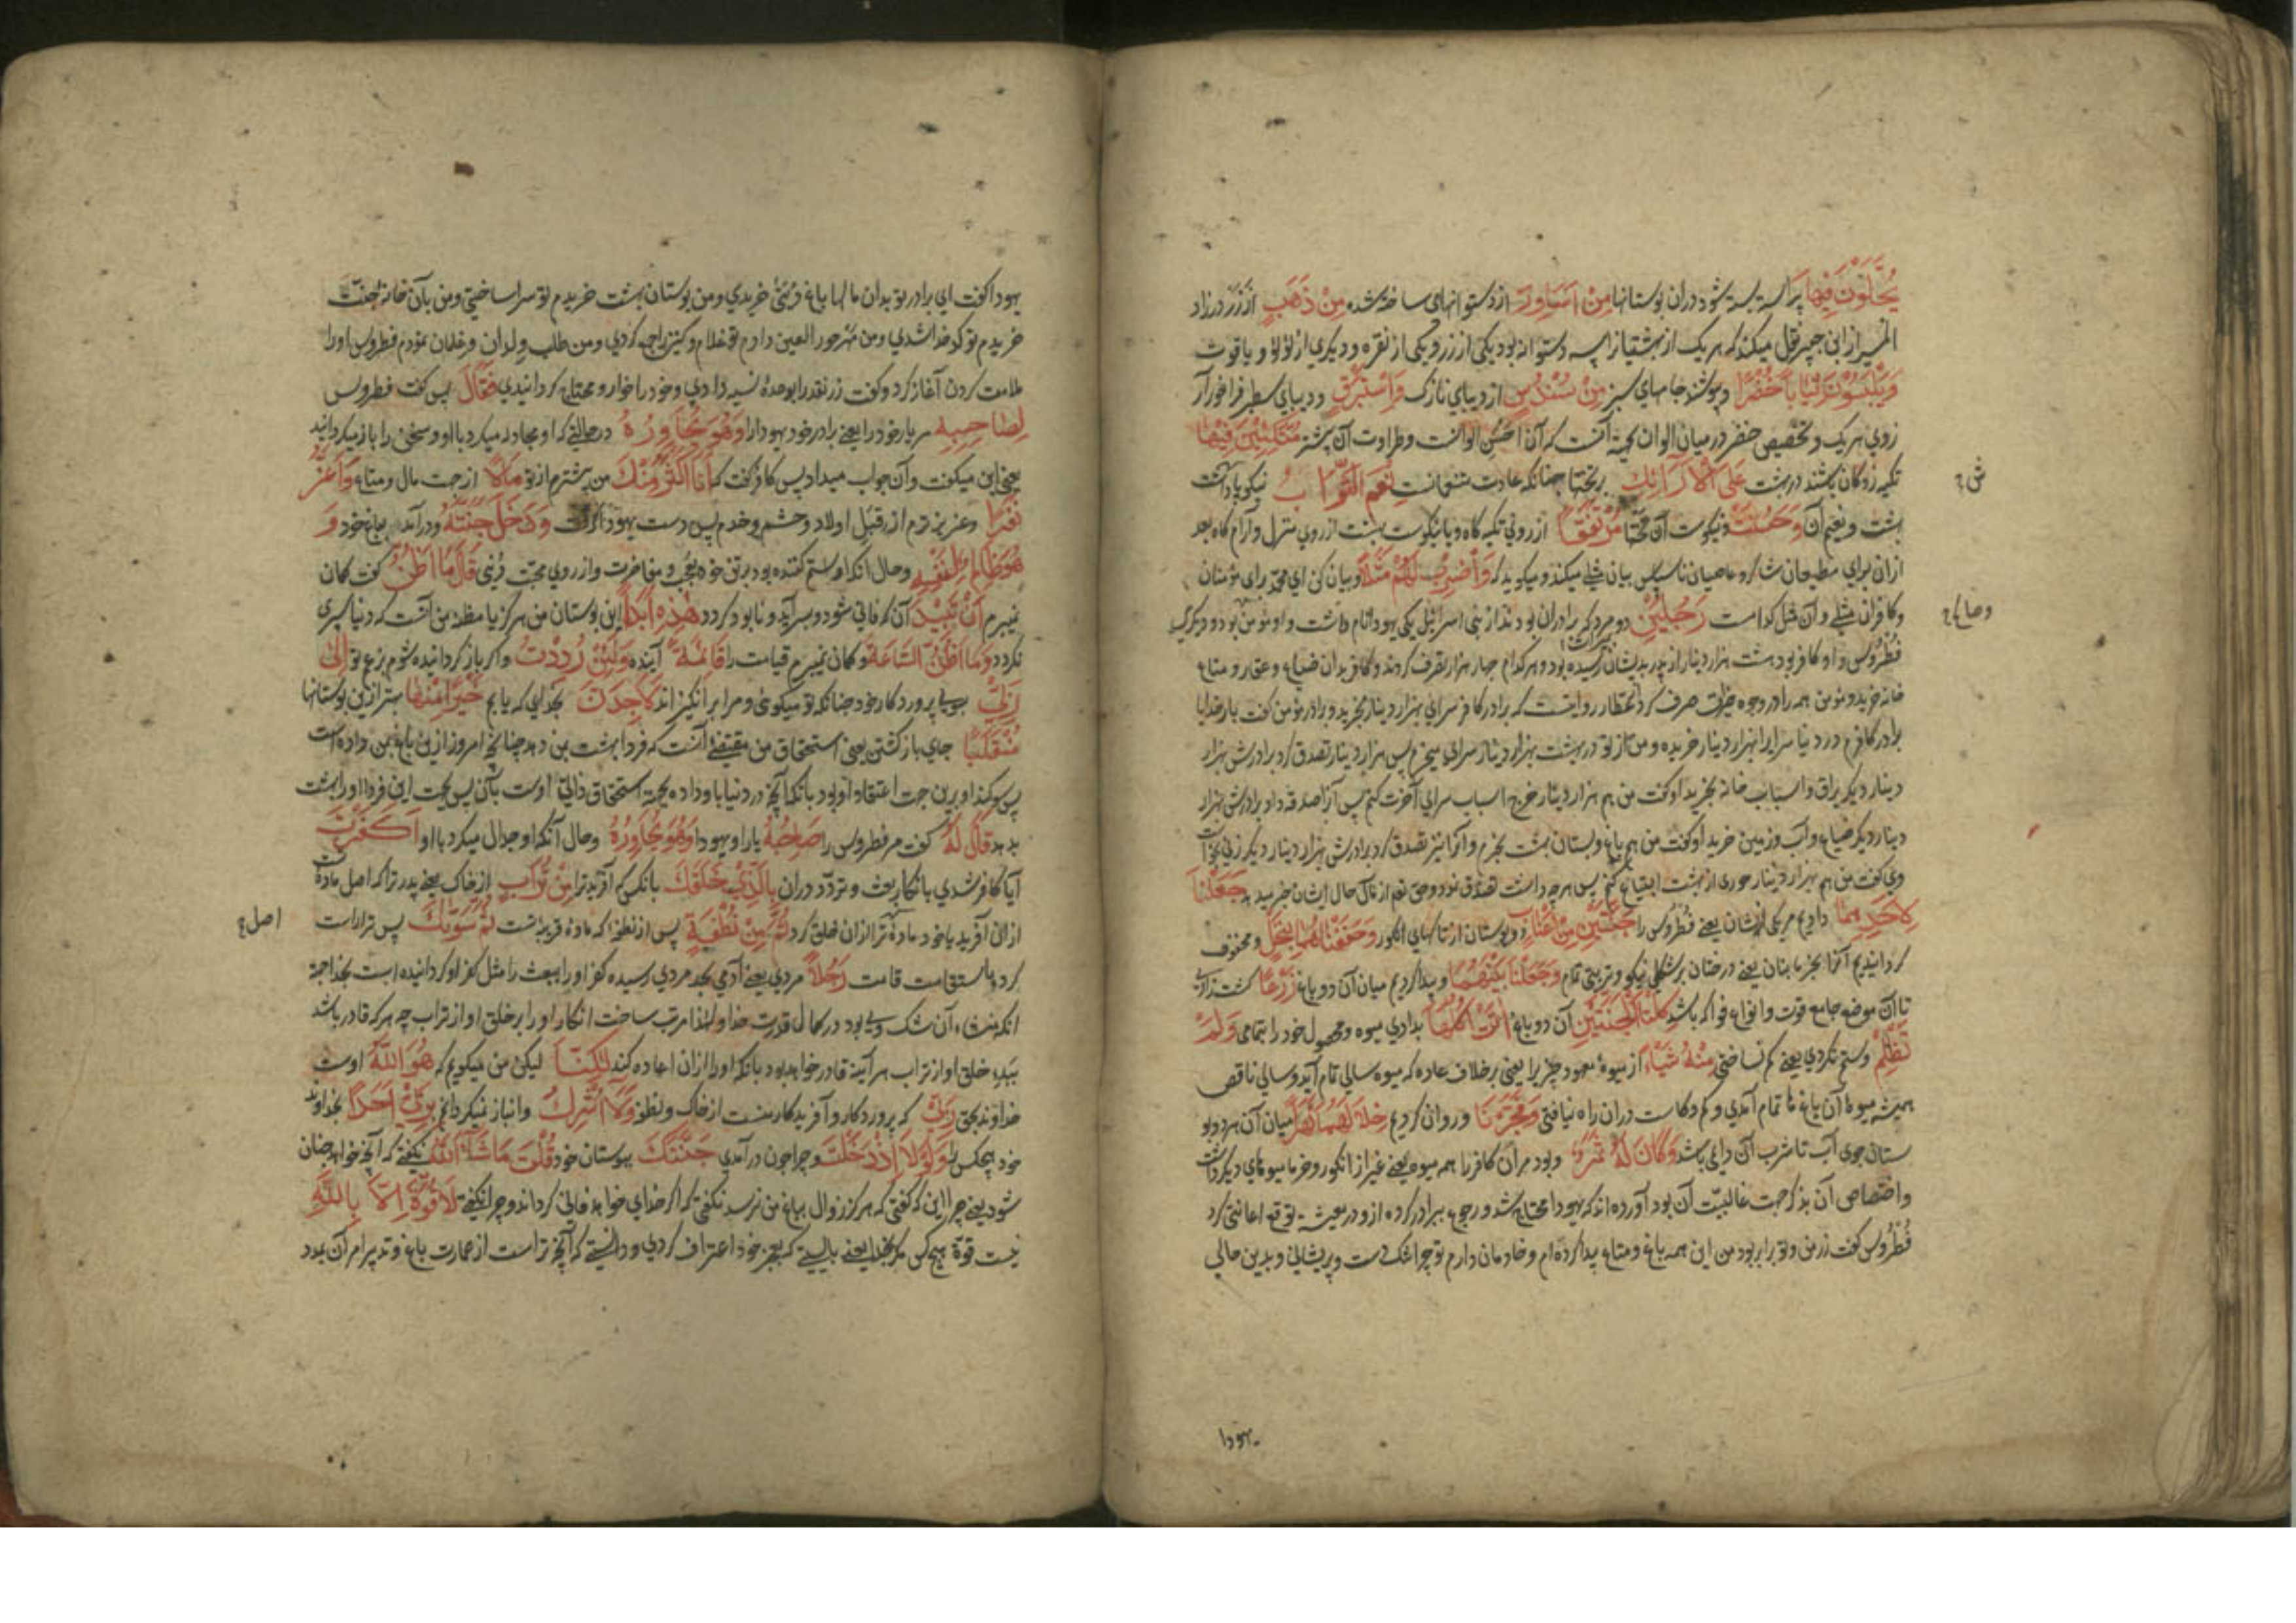 يُحَلَّوْنَ فِيهَا پیراسته بسته شود در آن بوستانها مِنْ اَسَاوِرَ از دستوانهای ساخته شده مِنْ ذَهَبٍ از زر در زاد
المسیر از ابن جبیر نقل میکند که هر یک از بهشتیان را سه دستوانه بود یکی از زر و یکی از نقره و دیگری از لؤلؤ و یاقوت
وَيَلْبَسُونَ ثِيَابًا خُضْرًا و پوشند جامهای سبز مِنْ سُنْدُسٍ از دیبای نازک وَاِسْتَبْرَقٍ و دیبای سطبر فراخور آر
زوی هر یک و تخصیص خضر در میان الوان بجهة آنست که آن احسن الوانست و طراوت آن بیشتر مُتَّكِئِينَ فِيهَا
تکیه زدگان باشند در بهشت عَلَى الْاَرَائِكِ بر تختها چنانکه عادت متنعمانست نِعْمَ الثَّوَابُ نیکو پاداشت
بهشت و نعیم آن وَحَسُنَتْ و نیکوست آن تختها مُرْتَفَقًا از روی تکیه گاه و یا نیکوست بهشت از روی منزل و آرام گاه بعد
ازان برای مطیعان شاکر و عاصیان ناسپاس بیان مثلی میکند و میگوید که وَاضْرِبْ لَهُمْ مَثَلًا و بیان کن ای محمد برای مؤمنان
و کافران مثلی و آن مثل کدامست رَجُلَيْنِ دو مرد که برادران بودند از بنی اسرائیل یکی یهودا نام داشت و او مؤمن بود و دیگری
فُطْرُوس و او کافر بود هشت هزار دینار از پدر بدیشان میراث رسیده بود و هر کدام چهار هزار تصرف کردند و کافر بدان ضیاع و عقار و متاع
خانه خرید و مؤمن همه را در وجوه خیرات صرف کرد روایتست که برادر کافر سرای بهزار دینار بخرید و برادر مؤمن گفت بار خدایا
برادر کافرم در دنیا سرایرا بهزار دینار خریده و من از تو در بهشت بهزار دینار سرای میخرم پس هزار دینار تصدق کرد برادرش بهزار
دینار دیگر یراق و اسباب خانه بخرید او گفت من هم هزار دینار خرج اسباب سرای آخرت کنم پس آنرا صدقه داد برادرش بهزار
دینار دیگر ضیاع و آب و زمین خرید او گفت من هم باغ و بستان بهشت بخرم و آنرا نیز تصدق کرد برادرش بهزار دینار دیگر زنی بخواست
وی گفت من هم بهزار دینار حوری از بهشت ابتیاع کنم پس هر چه داشت تصدق نمود و حق تعم از مآل حال ایشان خبر میدهد جَعَلْنَا
لِاَحَدِهِمَا دادیم مر یکی ازیشان یعنی فُطْرُوس را جَنَّتَيْنِ مِنْ اَعْنَابٍ دو بوستان از تاکهای انگور وَحَفَفْنَاهُمَا بِنَخْلٍ و محفوف
گردانیدیم آنرا بخرمابنان یعنی درختان بر شکلی نیکو و تربیتی تمام وَجَعَلْنَا بَيْنَهُمَا و پیدا کردیم میان آن دو باغ زَرْعًا کشت زاری
تا آن موضع جامع قوت و انواع فواکه باشد كِلْتَا الْجَنَّتَيْنِ آن دو باغ اٰتَتْ اُكُلَهَا بدادی میوه و محصول خود را بتمامی وَلَمْ
تَظْلِمْ و ستم نکردی یعنی کم نساختی مِنْهُ شَيْئًا از میوهٔ معهود چیزیرا یعنی برخلاف عاده که میوه سالی تمام آید و سالی ناقص
همیشه میوهٔ آن باغها تمام آمدی و کم و کاست دران راه نیافتی وَفَجَّرْنَا و روان کردیم خِلَالَهُمَا نَهَرًا میان آن هر دو بو
ستان جوی آب تا شرب آن دایمی باشد وَكَانَ لَهُ ثَمَرٌ و بود مر آن کافر را همه میوه یعنی غیر از انگور و خرما میوهای دیگر داشت
و اختصاص آن بذکر جهت غالبیّت آن بود آورده اند که یهودا محتاج شد و رجوع ببرادر کرده ازو در معیشت توقع اعانتی کرد
فُطْرُوس گفت زر من و تو برابر بود من این همه باغ و متاع پیدا کرده ام و خادمان دارم تو چرا تنگدست و پریشانی و بدین حالی
یهودا
ش ح
وصاع ح
یهودا گفت ای برادر تو بدان مالها باغ و زنی خریدی و من بوستان بهشت خریدم تو سرا ساختی و من بآن خانهٔ جنت
خریدم تو کدخدا شدی و من مهر حور العین دادم تو غلام و کنیزک جمع کردی و من طلب ولدان و غلمان نمودم فطروس او را
ملامت کردن آغاز کرد و گفت زر نقد را بوعدهٔ نسیه دادی و خود را خوار و محتاج گردانیدی فَقَالَ پس گفت فطروس
لِصَاحِبِهِ مر یار خود را یعنی برادر خود یهودا را وَهُوَ يُحَاوِرُهُ در حالتی که او مجادله میکرد با او و سخن را باز میگردانید
یعنی این میگفت و آن جواب میداد پس کافر گفت که اَنَا اَكْثَرُ مِنْكَ من بیشترم از تو مَالًا از جهت مال و متاع وَاَعَزُّ
نَفَرًا و عزیزترم از قبل اولاد و حشم و خدم پس دست یهودا گرفت وَدَخَلَ جَنَّتَهُ و در آمد بباغ خود وَ
هُوَ ظَالِمٌ لِنَفْسِهِ و حال آنکه او ستم کننده بود بر تن خود بعجب و مفاخرت و از روی محبت دُنْیی قَالَ مَا اَظُنُّ گفت گمان
نمیبرم اَنْ تَبِيدَ آن که فانی شود و بسر آید و نابود گردد هٰذِهِ اَبَدًا این بوستان من هرگز یا مظنهٔ من آنست که دنیا سپری
نگردد وَمَا اَظُنُّ السَّاعَةَ و گمان نمیبرم قیامت را قَائِمَةً آینده وَلَئِنْ رُدِدْتُ و اگر باز گردانیده شوم بزعم تو اِلٰى
رَبِّي بسوی پروردگار خود چنانکه تو میگوئی و مرا برانگیزانند لَاَجِدَنَّ بخدایی که یابم خَيْرًا مِنْهَا بهتر ازین بوستانها
مُنْقَلَبًا جای بازگشتن یعنی استحقاق من مقتضی آنست که فردا بهشت بمن دهد چنانچه امروز ازین باغ بمن داده است
پس سوگند او برین جهت اعتقاد او بود بآنکه آنچه در دنیا باو داده بجهة استحقاق ذاتی اوست بآن پس بجهت این فردا او را بهشت
بدهد قَالَ لَهُ گفت مر فطروس را صَاحِبُهُ یار او یهودا وَهُوَ يُحَاوِرُهُ و حال آنکه او جدال میکرد با او اَكَفَرْتَ
آیا کافر شدی بانکار بعث و تردد دران بِالَّذِي خَلَقَكَ بآنکس که آفرید ترا مِنْ تُرَابٍ از خاک یعنی پدر ترا که اصل مادهٔ
از ان آفرید یا خود مادهٔ ترا ازان خلق کرد ثُمَّ مِنْ نُطْفَةٍ پس از نطفه که مادهٔ قریبهٔ تست ثُمَّ سَوَّاكَ پس ترا راست
کرد باستقامت قامت رَجُلًا مردی یعنی آدمی بحد مردی رسیده کفر او را ببعث را مثل کفر او گردانیده است بخدا بجهة
آنکه منشاء آن شک وی بود در کمال قدرت خدا و لهذا مرتب ساخت انکار او را بر خلق او از تراب چه هر که قادر باشد
بَبَدء خلق او از تراب هر آینه قادر خواهد بود بآنکه او را ازان اعاده کند لٰكِنَّا لیکن من میگویم که هُوَ اللّٰهُ اوست
خداوند بحق رَبِّي که پروردگار و آفریدگار منست از خاک و نطفه وَلَا اُشْرِكُ و انباز نمیگردانم بِرَبِّي اَحَدًا بخداوند
خود هیچکس را وَلَوْلَا اِذْ دَخَلْتَ و چرا چون در آمدی جَنَّتَكَ ببوستان خود قُلْتَ مَا شَاءَ اللّٰهُ نگفتی که آنچه خواهد چنان
شود یعنی چرا این که گفتی که هرگز زوال بباغ من نرسد نگفتی که اگر خدای خواهد فانی گرداند و چرا نگفتی لَا قُوَّةَ اِلَّا بِاللّٰهِ
نیست قوة هیچکس مگر بخدا یعنی بایستی که بعجز خود اعتراف کردی و دانستی که آنچه تراست از عمارت باغ و تدبیر امر آن بمدد
اصل ح